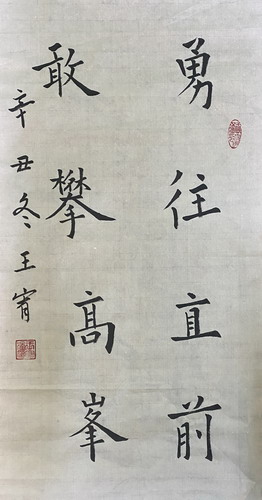 勇往直前
敢攀髙峯
辛丑冬王寗